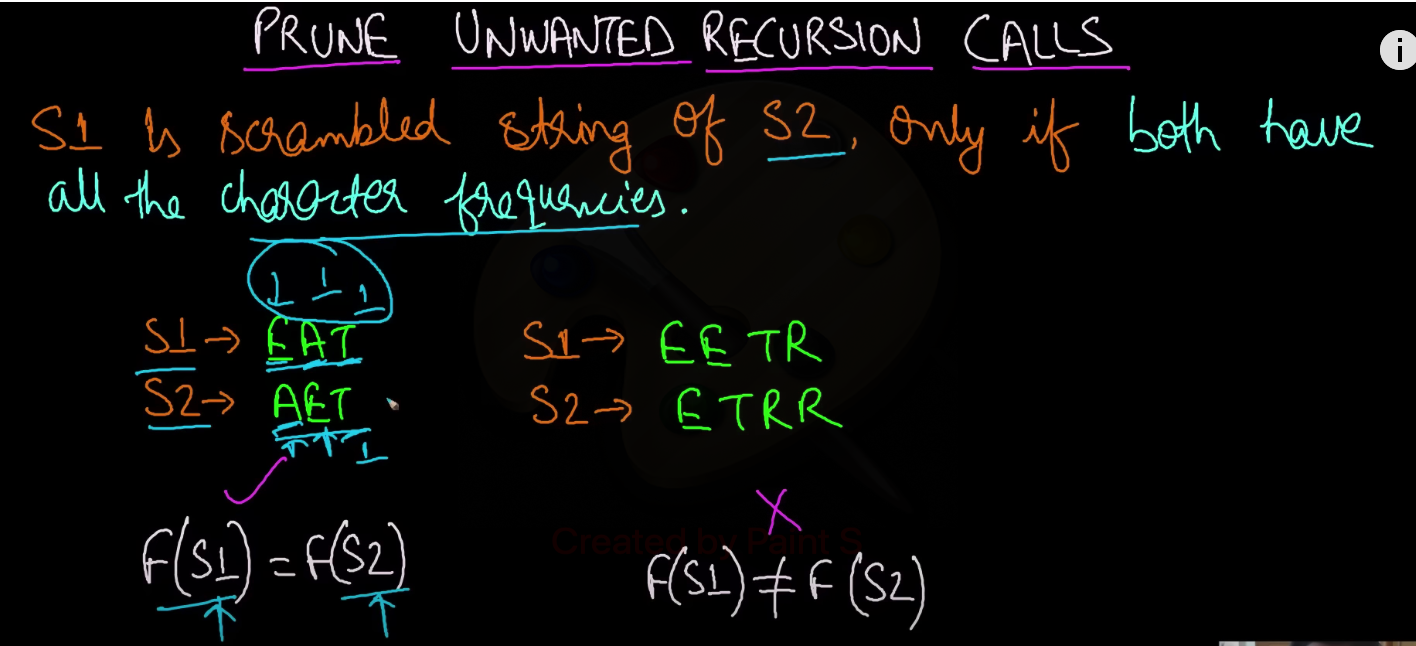 PRUNE UNWANTED RECURSION CALLS
S1 is scrambled string of S2, only if both have
all the character frequencies.
1 1 1
S1→ EAT
S2→ AET
1 1 1
F(S1) = F(S2)
S1→ EETR
S2→ ETRR
X
F(S1) ≠ F(S2)
Created by Paint S
i